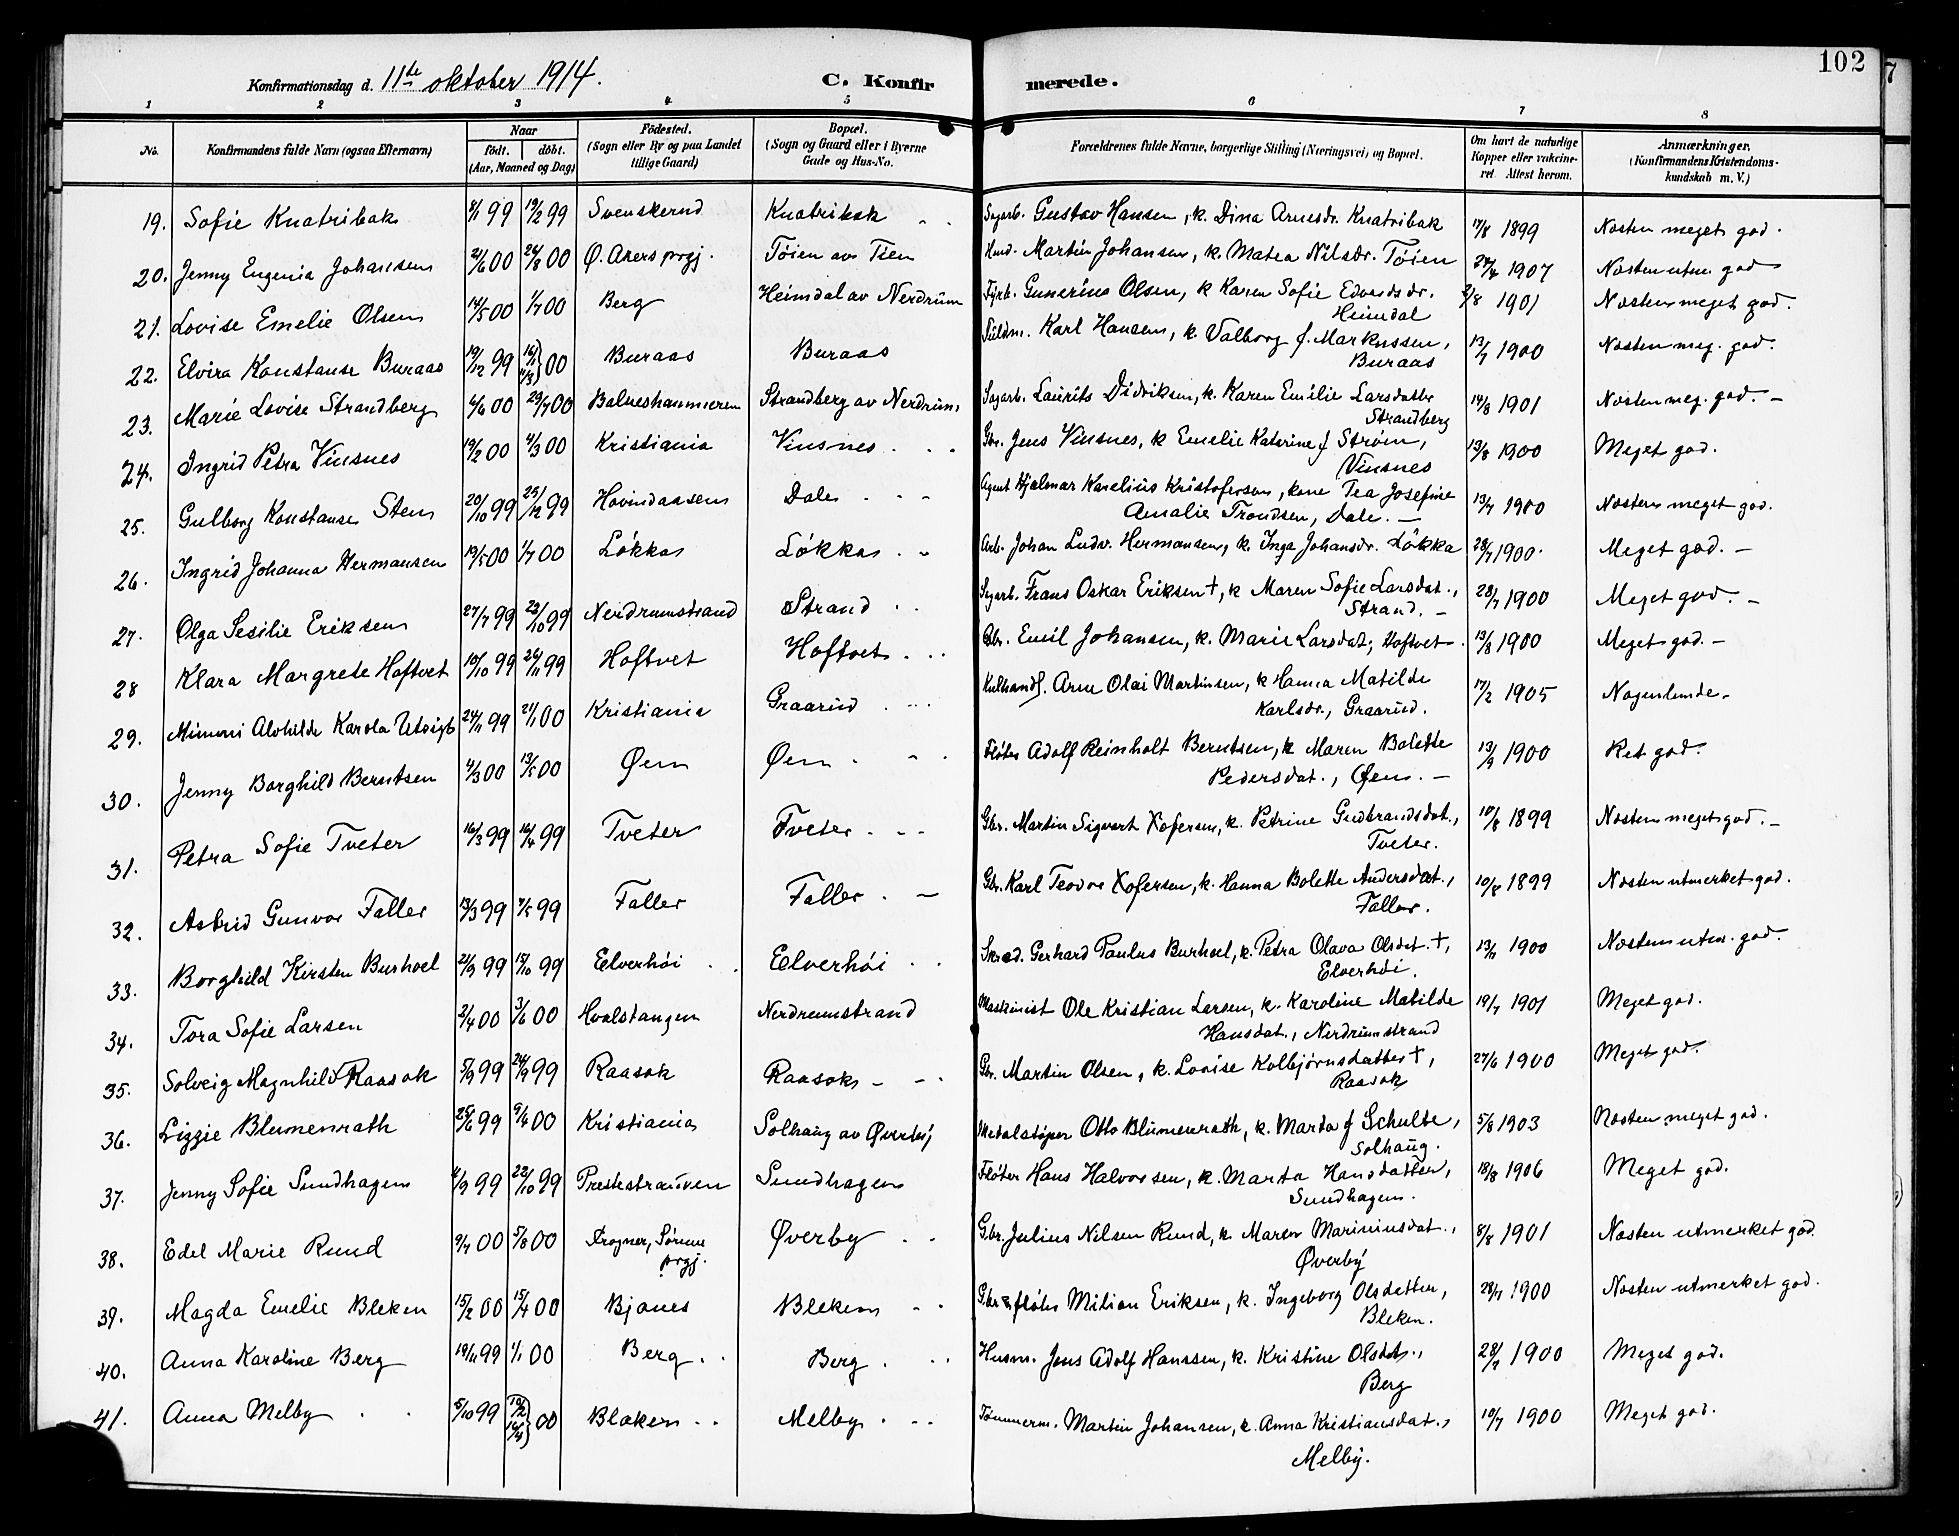 102
7
Konfirmationsdag d. 11te oktober 1914. C. Konfirmerede.
1 2 3 4 5 6 7 8
No. Konfirmandens fulde Navn (ogsaa Efternavn) Naar født. døbt. (Aar, Maaned og Dag) Fødested. (Sogn eller By og paa Landet tillige Gaard) Bopæl. (Sogn og Gaard eller i Byerne Gade og Hus-No. Forældrenes fulde Navne, borgerlige Stilling (Næringsvei) og Bopæl. Om havt de naturlige Kopper eller vaccineret. Attest herom. Anmærkninger. (Konfirmandens Kristendomskundskab m. V.)
19. Sofie Knatribak 8/1 99 19/2 99 Svenskerud Knatribak Sagarb. Gustav Hansen, k. Dina Arnesdr. Knatribak 17/8 1899 Næsten meget god.
20. Jenny Eugenia Johansen 21/6 00 26/8 00 Ø. Akers prgj. Tøien av Tien Martin Johansen, k. Matea Nilsdr. Tøien 1907 Næsten utm. god
21. Lovise Emelie Olsen 14/5 00 1/7 00 Berg Heimdal av Nerdrum Fyrb. Gunerius Olsen, k Karen Sofie Edvardsdr. Heimdal 2/8 1901 Næsten meget god.
22. Elvira Konstanse Buraas 19/12 99 00 Buraas Buraas Karl Hansen, k. Valborg f. Markussen, Buraas 13/7 1900 Næsten meg. god.
23. Marie Lovise Strandberg 4/6 00 29/7 00 Balneshammeren Strandberg av Nerdrum Sagarb. Laurits Didriksen, k. Karen Emilie Larsdatter Strandberg 14/8 1901 Næsten meg. god. -
24. Ingrid Petra Vinsnes 19/2 00 4/3 00 Kristiania Vinsnes Gbr. Jens Vinsnes, k Emelie Katerine f Strøm, Vinsnes 13/8 1900 Meget god.
25. Gulborg Konstanse Sten 20/10 99 25/12 99 Hovindaasen Dalen Agent Hjalmar Karelius Kristofersen, kone Tea Josefine Amalie Trondsen, Dale. - 13/7 1900 Næsten meget god.
26. Ingrid Johanna Hermansen 19/5 00 1/7 00 Løkka Løkka Arb. Johan Ludv. Hermansen, k. Inga Johansdr. Løkka 28/7 1900. Meget god. -
27. Olga Sesilie Eriksen 27/7 99 22/10 99 Nerdrumstrand Strand Sagarb. Frans Oskar Eriksen †, k Maren Sofie Larsdat., Strand. - 28/7 1900 Meget god. -
28 Klara Margrete Hoftvet 10/10 99 26/11 99 Hoftvet Hoftvet Gbr. Emil Johansen, k. Marie Larsdat, Hoftvet 13/8 1900 Meget god. -
29. Mimmi Alvhilde Karola Utsigt 24/11 99 21/1 00 Kristiania Graarud Kulhandl. Arne Olai Martinsen, k Hanna Matilde Karlsdr., Graarud. 17/2 1905 Nogenlunde.
30. Jenny Borghild Berntsen 4/3 00 13/5 00 Øen Øen Fløter Adolf Reinholt Berntsen, k Maren Bolette Pedersdat., Øen. - 1900 Ret god.
31. Petra Sofie Tveter 16/3 99 16/4 99 Tveter Tveter Gbr. Martin Sigvart Xofersen, k. Petrine Gudbrandsdat., Tveter. 10/8 1899 Næsten meget god. -
32. Astrid Gunvor Faller 13/3 99 7/5 99 Faller Faller Gbr. Karl Teodor Xofersen, k. Hanna Bolette Andersdat., Faller. 10/8 1899 Næsten utmerket god.
33. Borghild Kirsten Burhoel 21/9 99 15/10 99 Elverhøi Elverhøi Skræd. Gerhard Paulus Burhoel, k. Petra Olava Olsdat. †, Elverhøi. 1900 Næsten utm. god.
34. Tora Sofie Larsen 2/4 00 3/6 00 Hvalstangen Nerdrumstrand Maskinist Ole Kristian Larsen, k. Karoline Matilde Hansdat., Nerdrumstrand 19/7 1901 Meget god.
35. Solveig Magnhild Raasok 5/9 99 24/9 99 Raasok Raasok Gbr. Martin Olsen, k. Lovise Kolbjørnsdatter †, Raasok 27/6 1900 Meget god.
36. Lizzie Blumenrath 25/6 99 00 Kristiania Solhaug av Øverby Metalstøper Otto Blumenrath, k. Marta f Schulte, Solhaug. 5/8 1903 Næsten meget god.
37. Jenny Sofie Sundhagen 4/9 99 22/10 99 Prestestranden Sundhagen Fløter Hans Halvorsen, k. Marta Hansdatter, Sundhagen. 18/8 1906 Meget god.
38. Edel Marie Rund 9/7 00 5/8 00 Drogner, Sørum prgj. Øverby Gbr. Julius Nilsen Rund, k Maren Mariniusdat., Øverby 8/8 1901 Næsten utmerket god
39. Magda Emelie Bleken 15/2 00 15/4 00 Bjanes Bleken Gbr & fløter Milian Eriksen, k. Ingeborg Olsdatter, Bleken. 28/7 1900 Næsten utmerket god.
40. Anna Karoline Berg 19/11 99 1/1 00 Berg Berg Husm. Jens Adolf Hanssen, k. Kristine Olsdat., Berg 28/7 1900 Meget god.
41. Anna Melby 5/10 99 00 Blaken Melby Tømmerm. Martin Johansen, k. Anna Kristiansdat., Melby. 10/7 1900 Meget god.